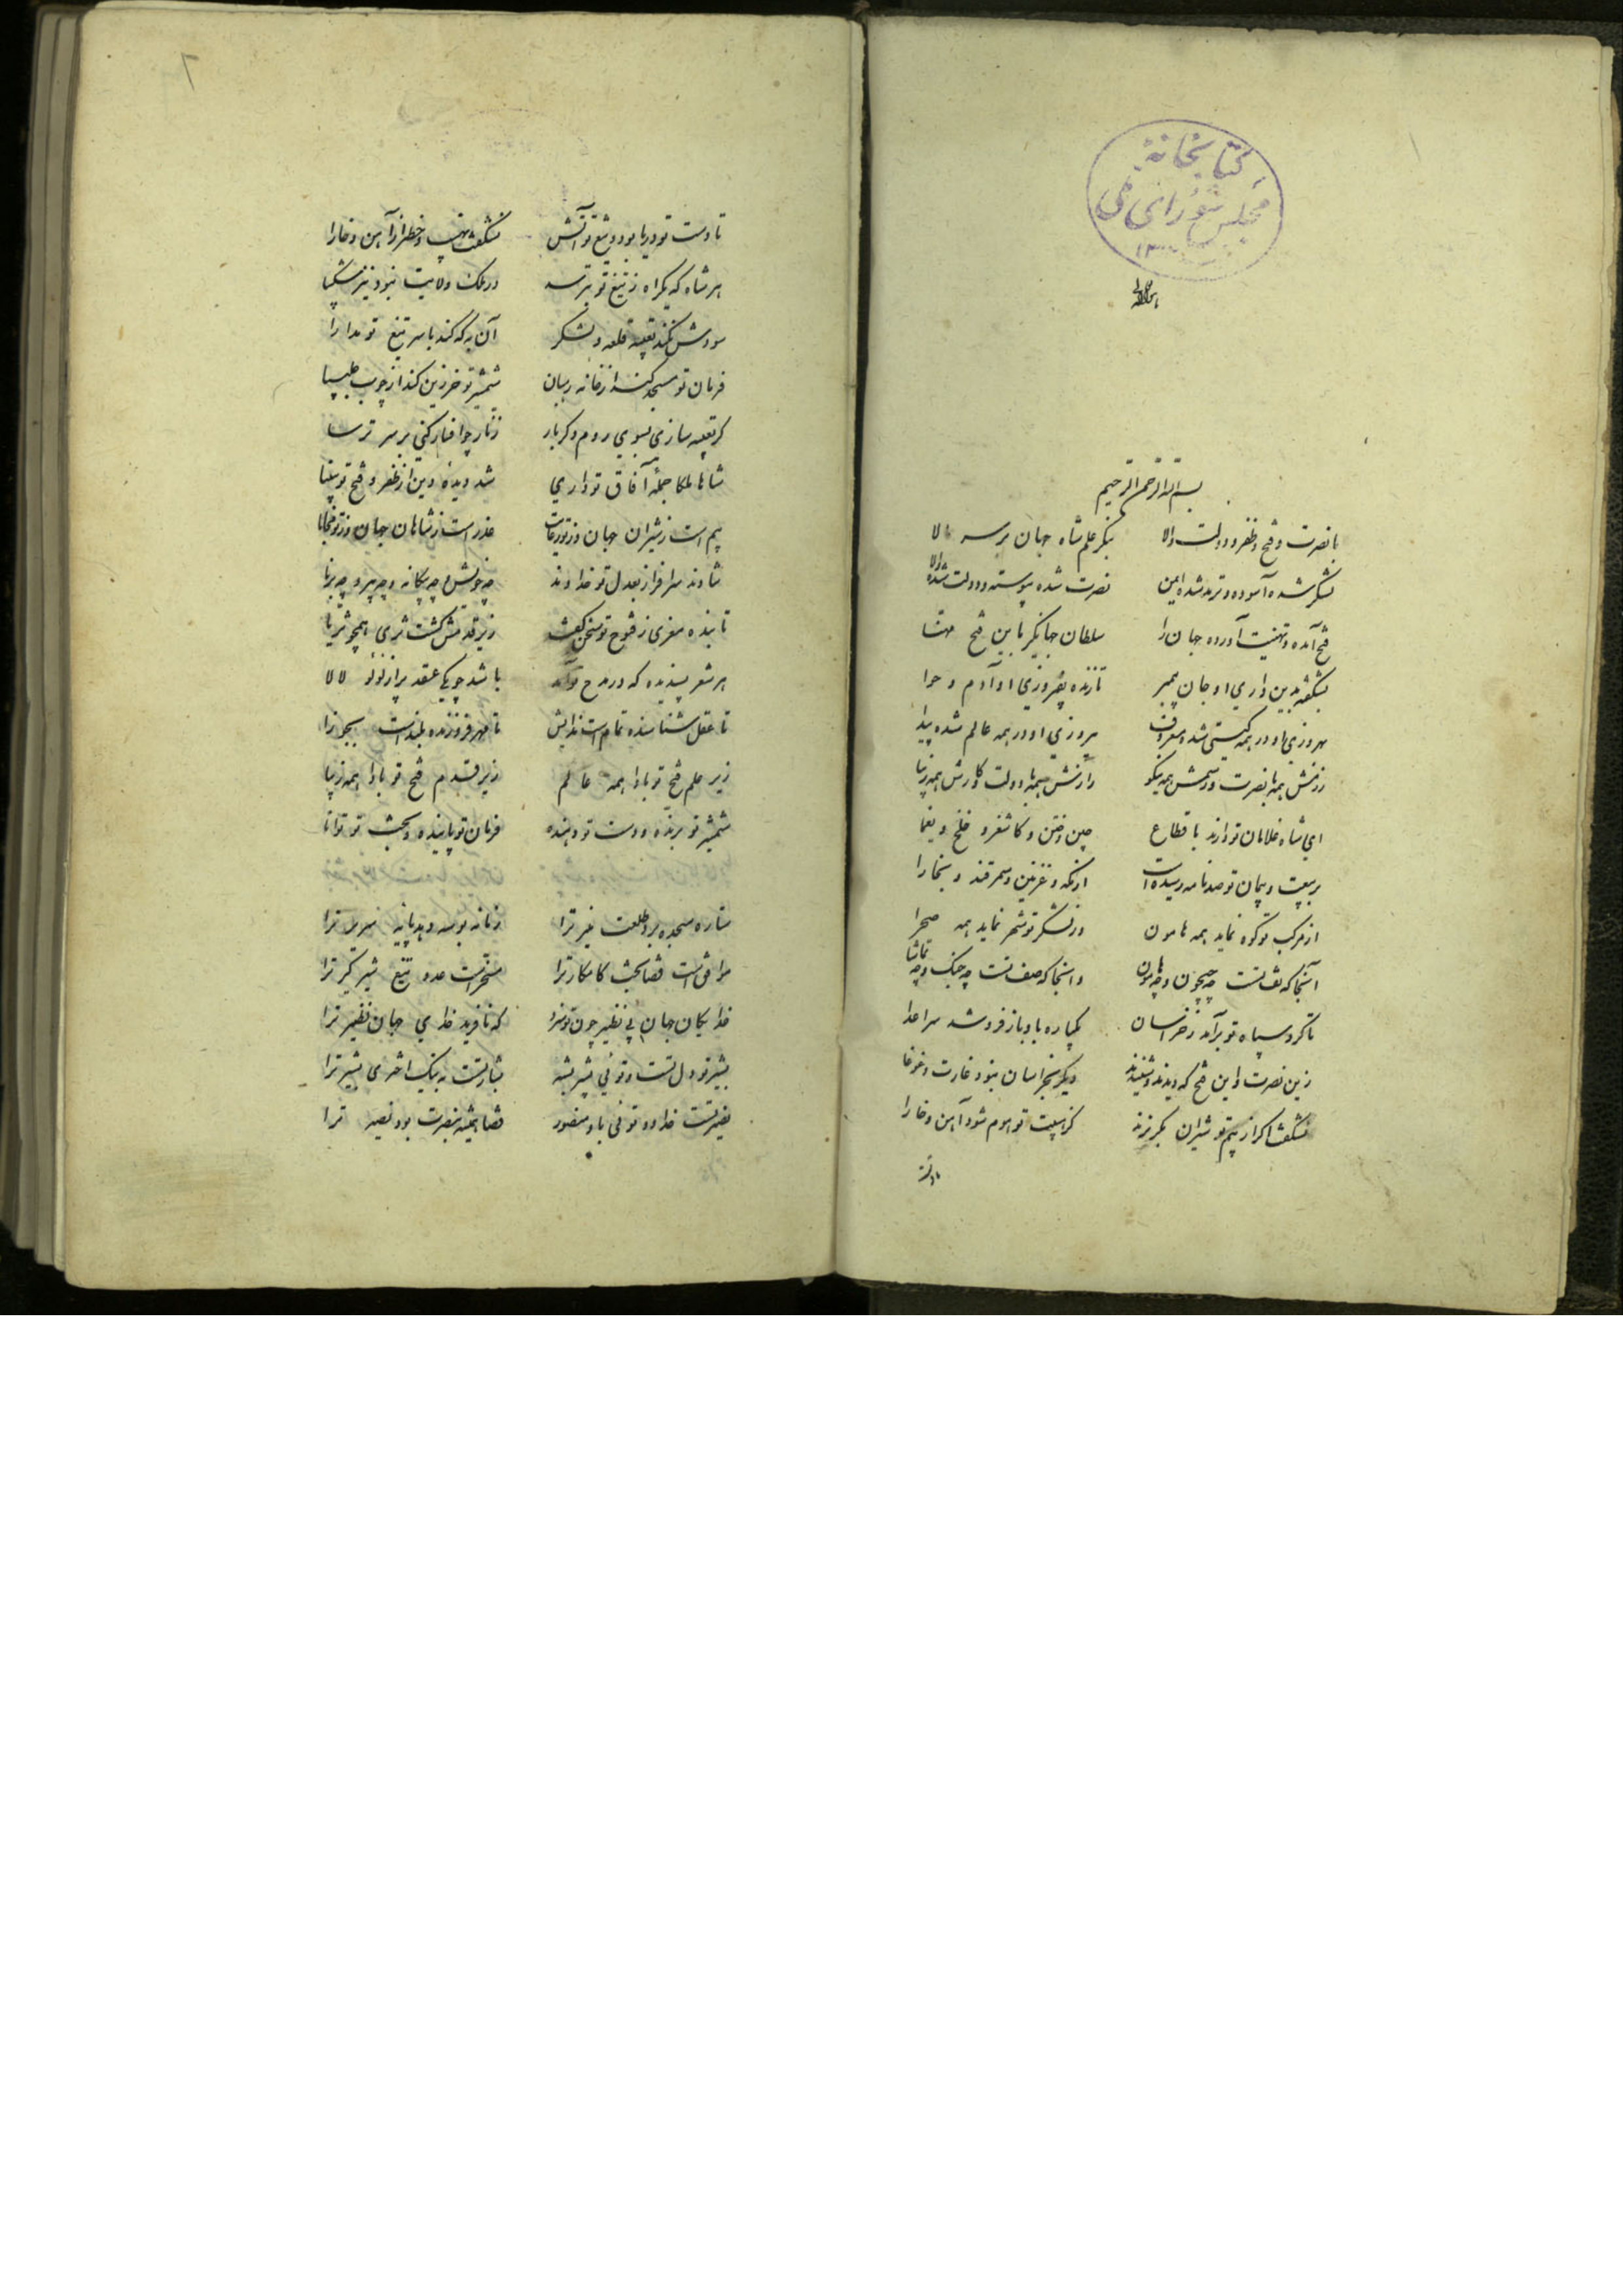 کتابخانهٔ
مجلس شورای ملی
۱۳
بسم الله الرحمن الرحیم
با نصرت و فتح و ظفر و دولت والا بنگر علم شاه جهان بر سر بالا
لشکر شده آسوده و ترمد شده ایمن نصرت شده پیوسته و دولت شده والا
فتح آمده و تهنیت آورده جهان را سلطان جهانگیر باین فتح مهنا
بشکفته بدین داری او جان پیمبر نازنده بفیروزی او آدم و حوا
بهروزی او در همه گیتی شده معروف پیروزی او در همه عالم شده پیدا
رزمش همه با نصرت و رسمش همه نیکو رایش همه با دولت و کارش همه زیبا
ای شاه غلامان تو دارند باقطاع چین و ختن و کاشغر و خلخ و یغما
بر بیعت و پیمان تو صد نامه رسیده است از مکه و غزنین و سمرقند و بخارا
از مرکب تو کوه نماید همه هامون وز لشکر تو شهر نماید همه صحرا
آنجا که تف تست چه جیحون و چه هامون و انجا که صف تست چه جنگ و چه تماشا
تا گرد سپاه تو برآمد ز خراسان یکباره بباد باز فرو شد سر اعدا
زین نصرت و این فتح که دیدند و شنیدند دیگر بخراسان نبود غارت و غوغا
نشگفت اگر از بیم تو شیران بگریزند کز هیبت تو موم شود آهن و خارا
تا دست
۲
تا دست تو دریا بود و تیغ تو آتش نشگفت نهیب و خطر از آهن و خارا
هر شاه که یکراه ز تیغ تو بترسد در ملک و ولایت نبود نیز شکیبا
سودش نکند تعبیه قلعه و لشکر آن به که کند با سر تیغ تو مدارا
فرمان تو مسجد کند از خانه رهبان شمشیر تو خرزین کند از چوب چلیپا
گر تعبیه سازی بسوی روم و کربار زنار چو افسار کنی بر سر ترسا
شاها ملکا جملهٔ آفاق تو داری شد دیده دین از ظفر و فتح تو بینا
بیم است ز شیران جهان وز تو رعایت عذر است ز شاهان جهان وز تو مجابا
شادند سرافراز بعدل تو خداوند چه خویش و چه بیگانه و چه پیر و چه برنا
تا بنده معزی ز فتوح تو سخن گفت زیر قدمش گشت ثری همچو ثریا
هر شعر پسندیده که در مدح تو آمد باشد چو یکی عقد پر از لؤلؤ لالا
تا عقل شناسنده تمام است تا مهر فروزنده بلند است
زیر علم فتح تو بادا همه عالم زیر قدم فتح تو بادا همه دنیا
شمشیر تو برنده و دست تو دهنده فرمان تو پاینده و بخت تو توانا
ستاره سجده برد طلعت منیر ترا زمانه بوسه دهد پایه سریر ترا
موافق است قضا بخت کامکار ترا مسخر است عدو تیغ شیر گیر ترا
خدایگان جهان بی نظیر چون تو سزد که نافرید خدای جهان نظیر ترا
بشیر تو دل تست و توئی بشیر بشیر بشارتست به نیک اختری بشیر ترا
نصیر تست خدا و توئی باو منصور قضا همیشه بنصرت بود نصیر ترا